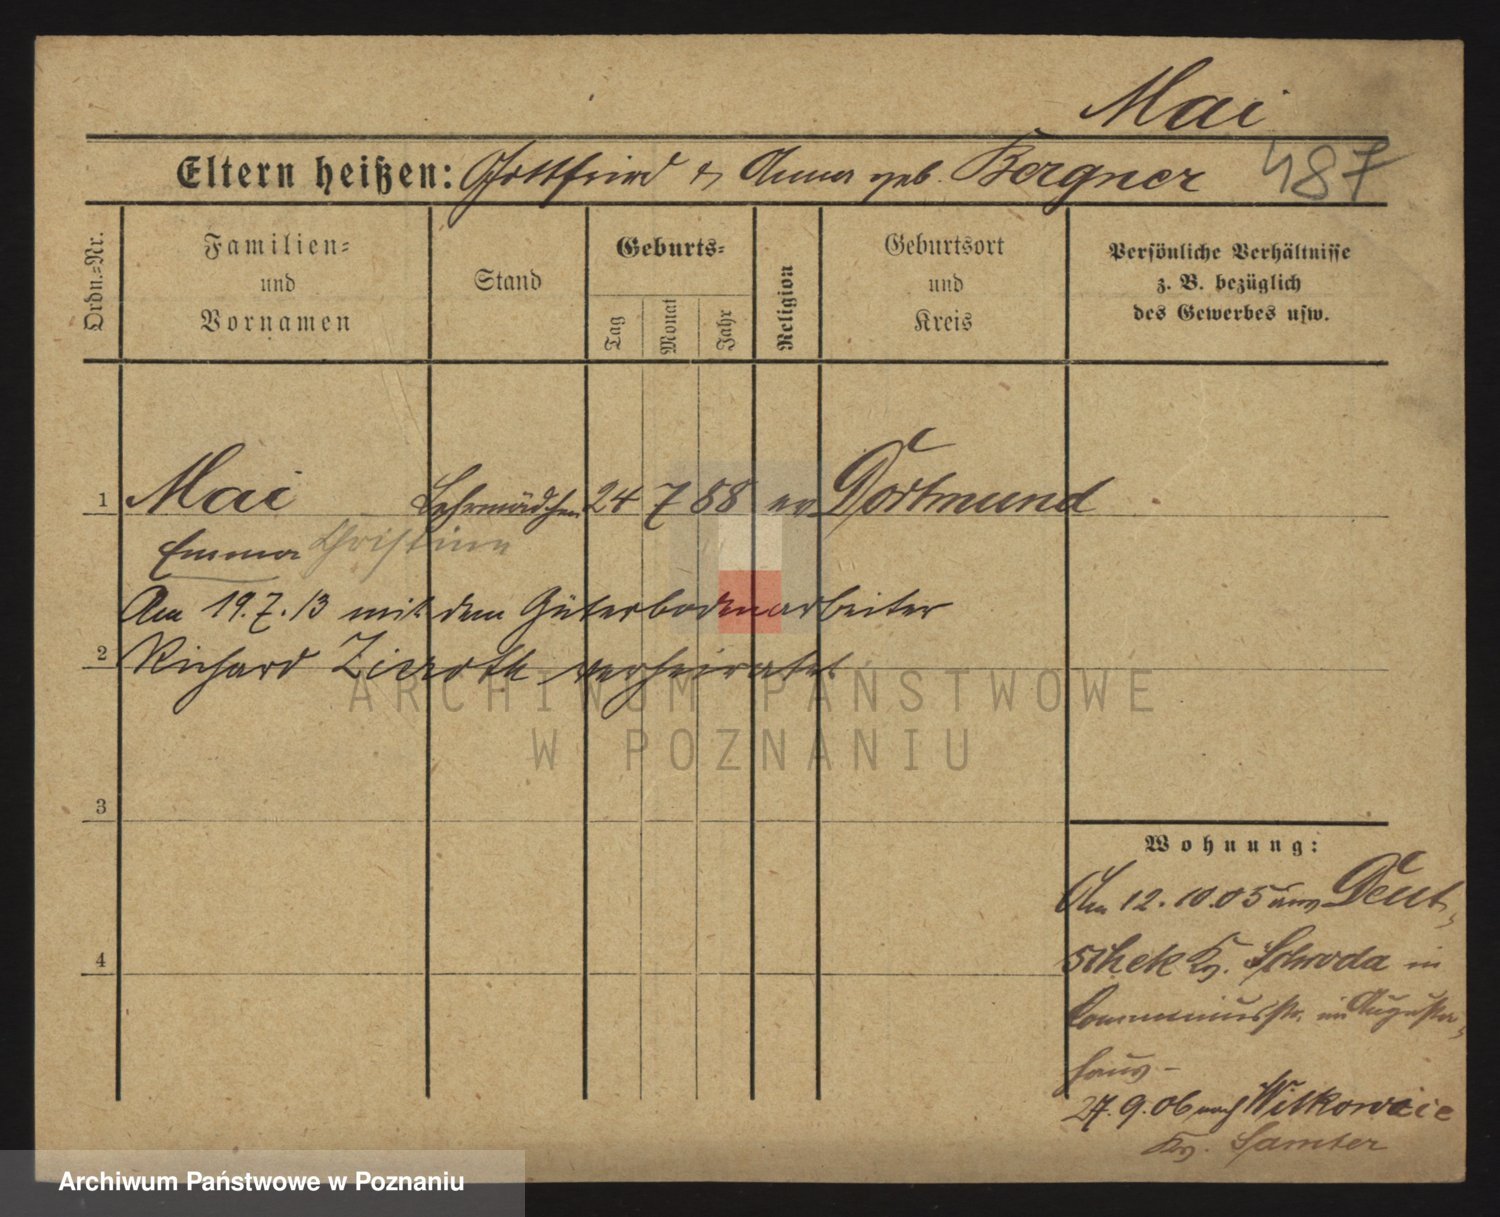 Mai
Eltern heißen: Gottfried & Anna geb. Bergner 487
Ordn.-Nr.
Familien- und Vornamen
Stand
Geburts-
Tag
Monat
Jahr
Religion
Geburtsort und Kreis
Persönliche Verhältnisse z. B. bezüglich des Gewerbes usw.
1 Mai Lehrmädchen 24 7 88 ev Dortmund
Emma Christine
Am 19.7.13 mit dem Güterbodenarbeiter
2 Richard Zieroth verheiratet
3
4
Wohnung:
Am 12.10.05 aus Deut-
schek Kr. Schroda in
Commeniusstr. im Augusta-
haus -
27.9.06 nach Wilkowcie
Kr. Samter
ARCHIWUM PAŃSTWOWE
W POZNANIU
Archiwum Państwowe w Poznaniu